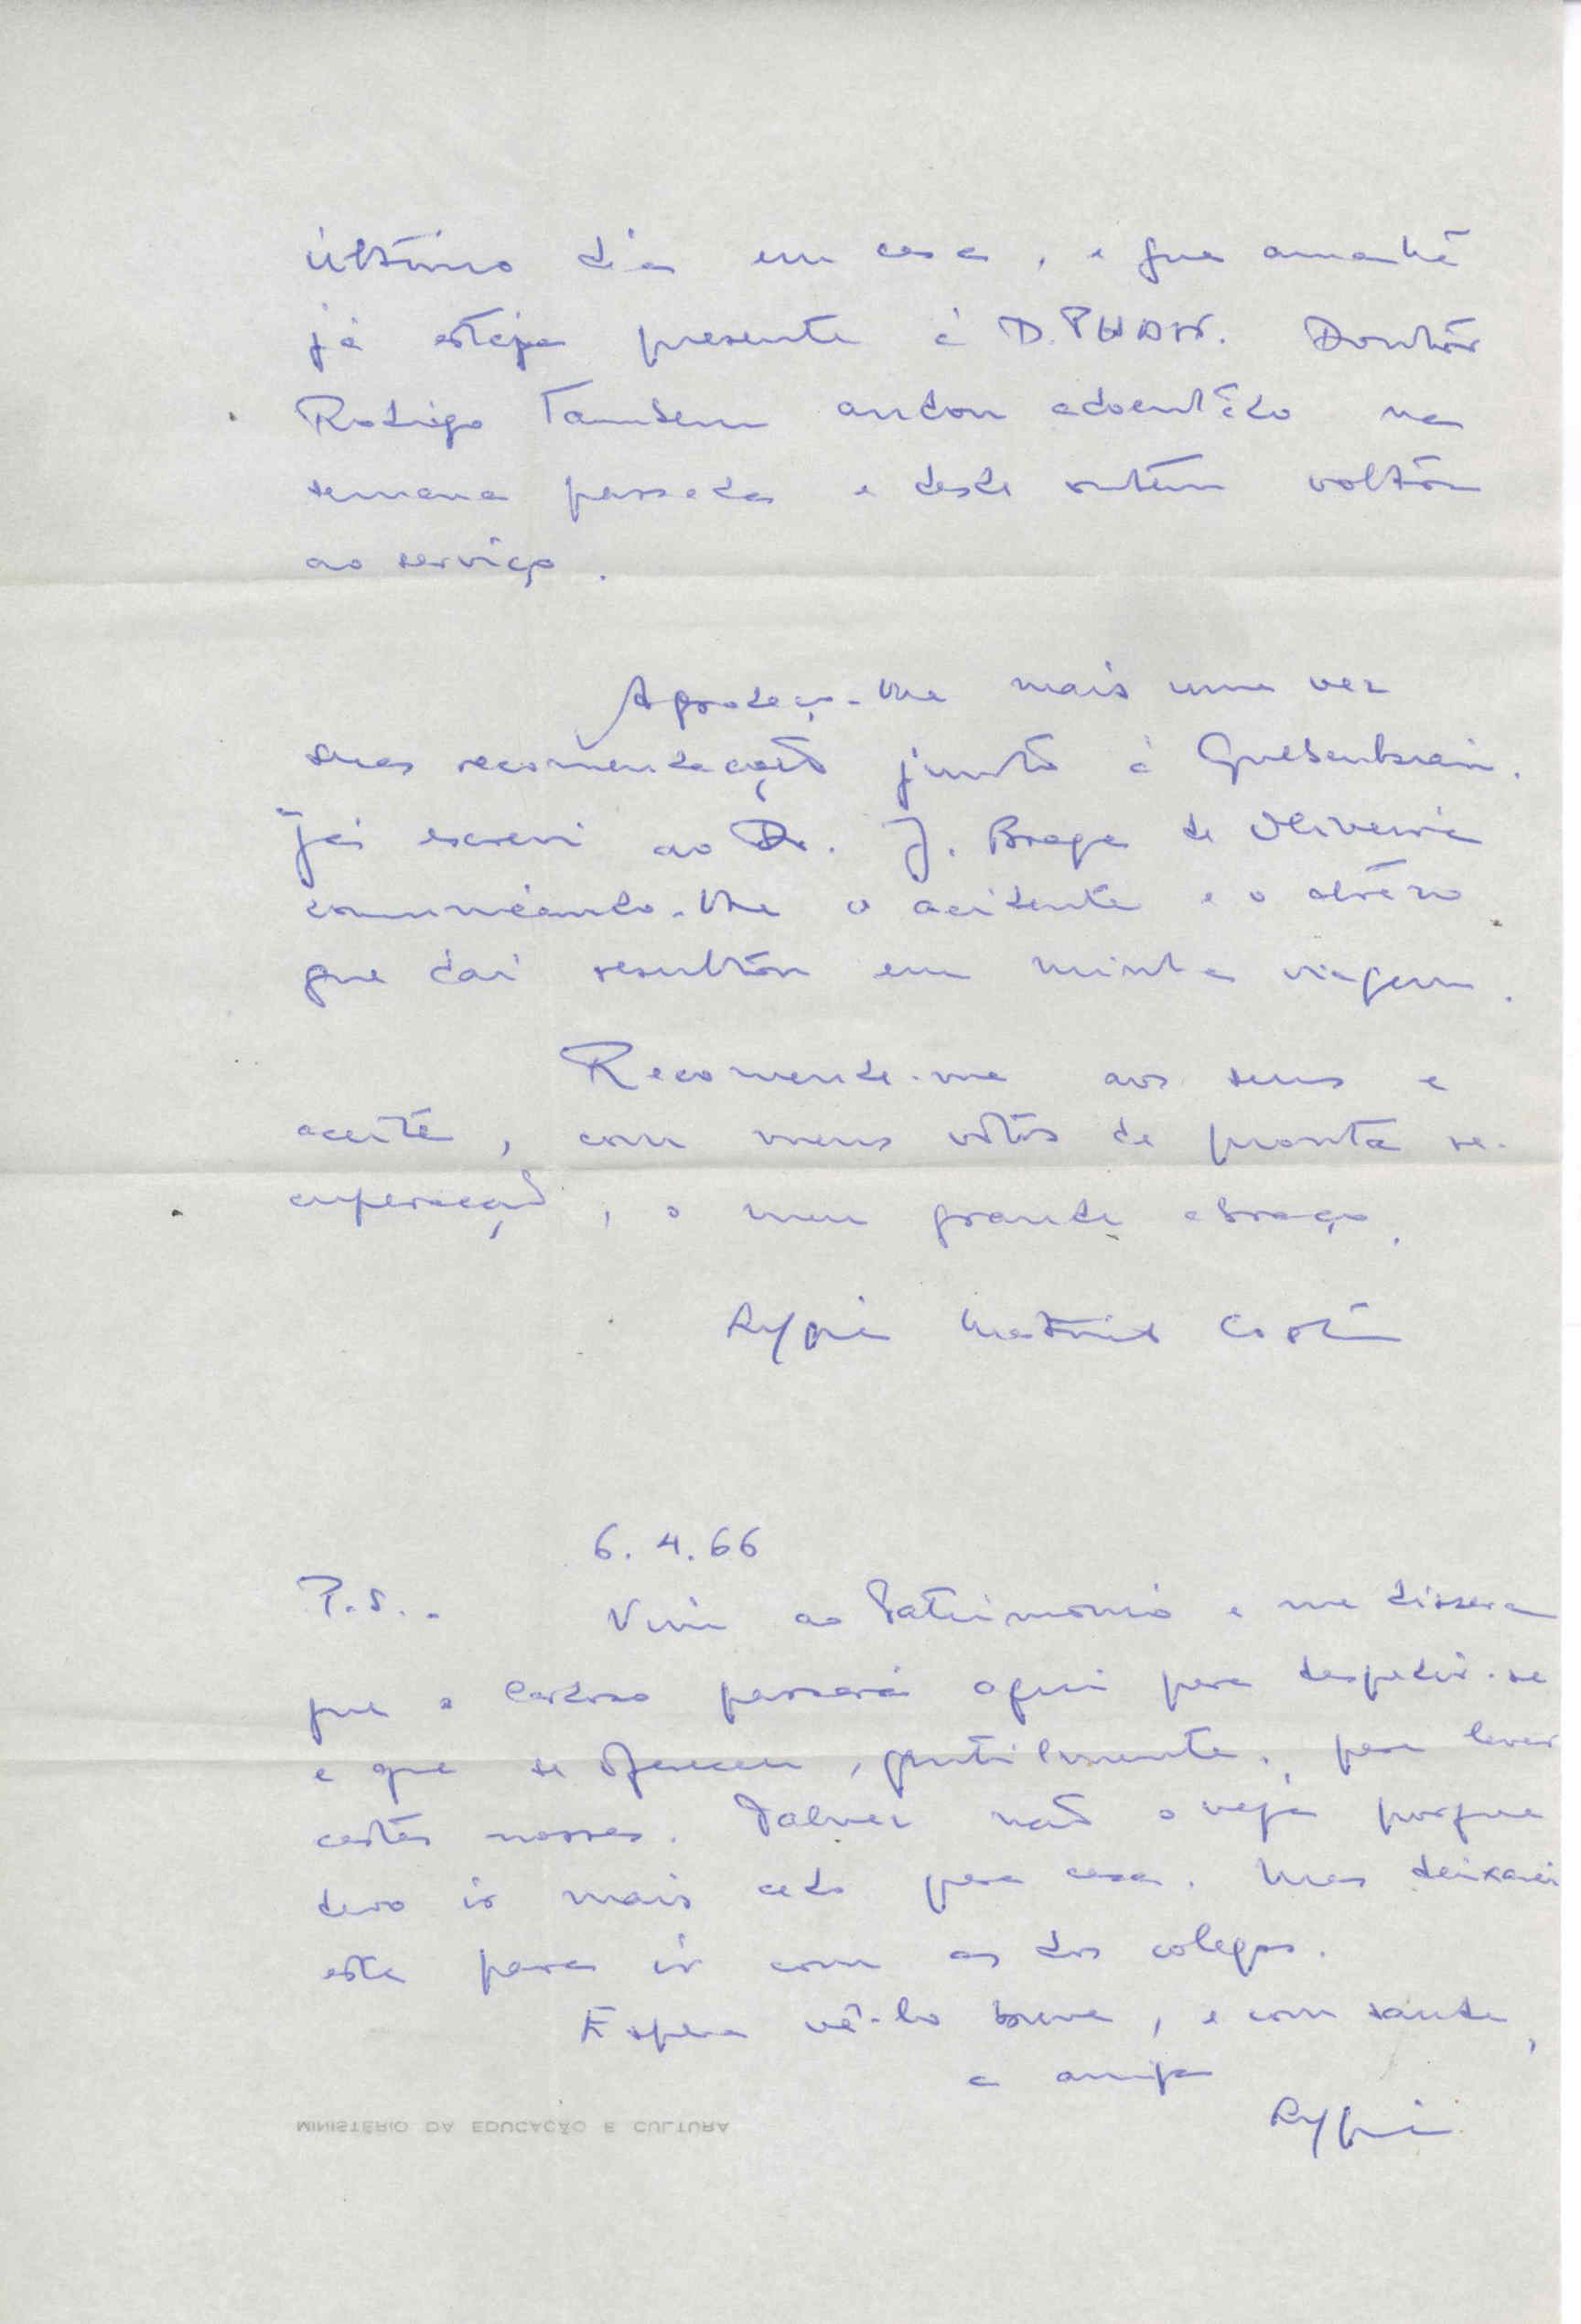 último dia em casa, e que amanhã
já esteja presente à D.PHAN. Doutor
Rodrigo Tambem andou adoentado na
semana passada e desde ontem voltou
ao serviço.
Agradeço-lhe mais uma vez
suas recomendações junto à Gulbenkian.
Já escrevi ao Dr. J. Braga de Oliveira
comunicando-lhe o acidente e o atrazo
que daí resultou em minha viagem.
Recomende-me aos seus e
aceite, com meus votos de pronta re-
cuperação, o meu grande abraço,
Lygia Martins Costa
6.4.66
P.S.. Vim ao Patrimonio e me dissera
que o Cardoso passará aqui para despedir-se
e que se ofereceu, gentilmente, para levar
cartas nossas. Talvez não o veja porque
devo ir mais cedo para casa. Mas deixarei
esta para ir com as dos colegas.
Espera vê-lo breve, e com saude,
a amiga
Lygia
MINISTÉRIO DA EDUCAÇÃO E CULTURA